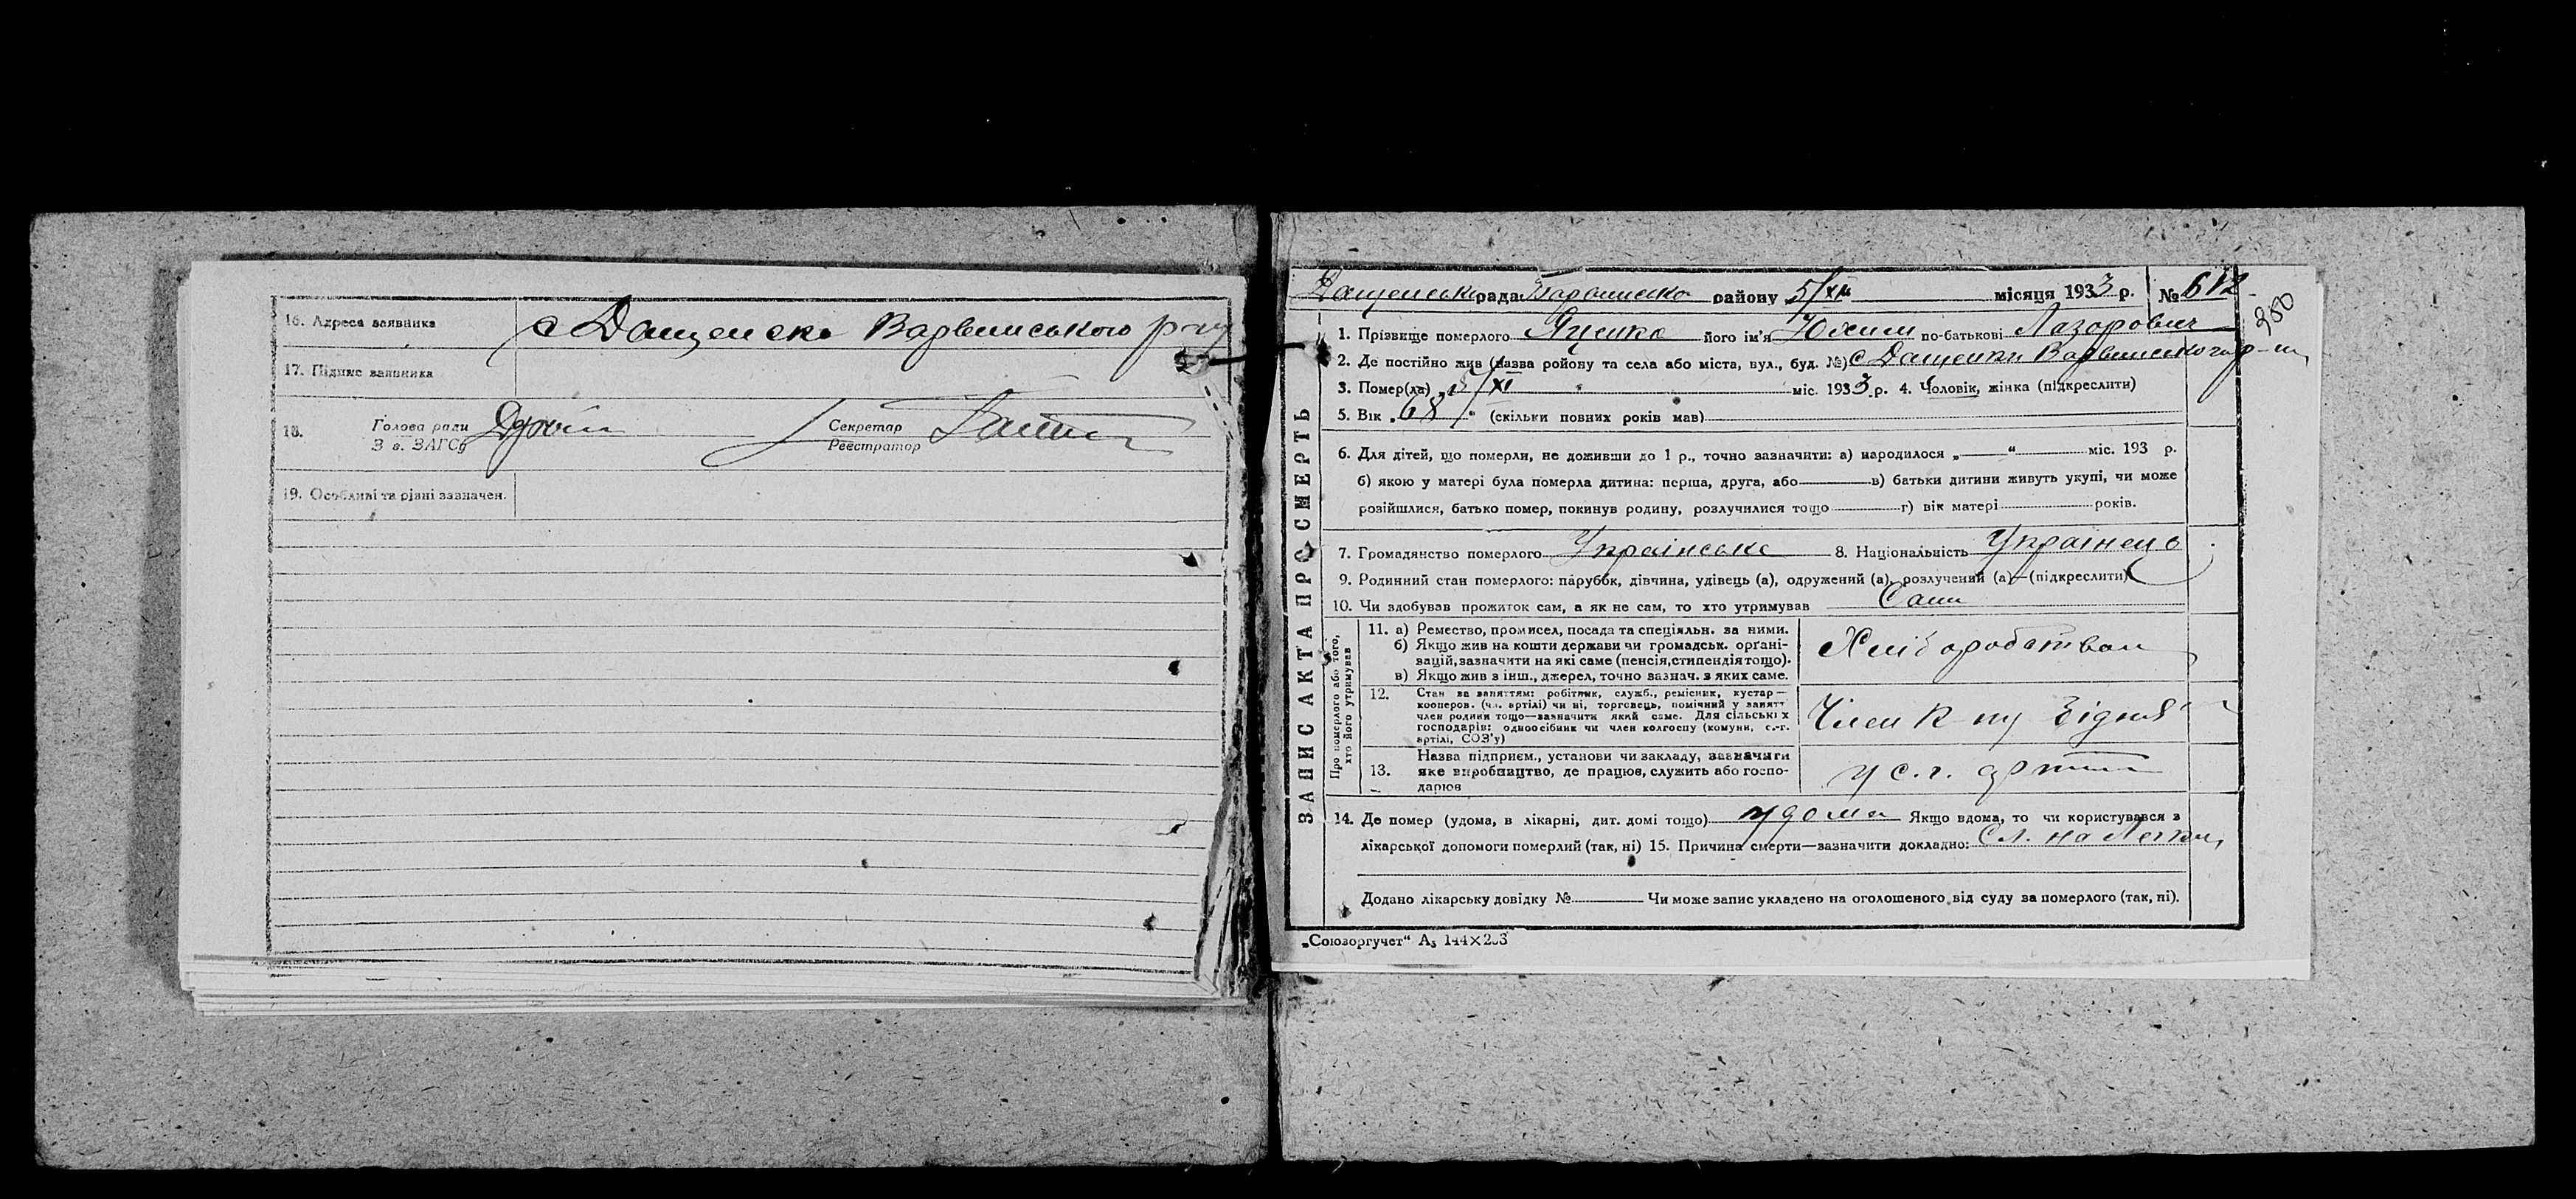 16. Адреса заявника с Дащенска Варвинського р-ну
17. Підпис заявника
18. Голова ради Секретар
З в. ЗАГСу Реєстратор
19. Особливі та різні зазначен.
Дащенська рада Варвинська району 5/XI місяця 1933 р. № 612
280
ЗАПИС АКТА ПРО СМЕРТЬ
1. Прізвище померлого Яценко його ім'я Юхим по-батькові Лазорович
2. Де постійно жив (назва району та села або міста, вул., буд. №) с Дащенки Варвинського р-ну
3. Помер(ла) „ 5/XI " міс. 1933 р. 4. Чоловік, жінка (підкреслити)
5. Вік „ 68 " (скільки повних років мав)
6. Для дітей, що померли, не доживши до 1 р., точно зазначити: а) народилося „ — " міс. 193 р.
б) якою у матері була померла дитина: перша, друга, або — в) батьки дитини живуть укупі, чи може
розійшлися, батько помер, покинув родину, розлучилися тощо г) вік матері років.
7. Громадянство померлого Українське 8. Національність Українець
9. Родинний стан померлого: парубок, дівчина, удівець (а), одружений (а), розлучений (а)—(підкреслити)
10. Чи здобував прожиток сам, а як не сам, то хто утримував Сам
Про померлого або того, хто його утримував
11. а) Ремество, промисел, посада та спеціяльн. за ними.
б) Якщо жив на кошти держави чи громадськ. органі-
вацій, зазначити на які саме (пенсія, стипендія тощо).
в) Якщо жив з інш., джерел, точно зазнач. з яких саме.
Хліборобством
12. Стан за заняттям: робітник, служб., ремісник, кустар—
кооперов. (чл. артілі) чи ні, торговець, помічний у занятт
член родини тощо—зазначити який саме. Для сільських
господарів: одноосібник чи член колгоспу (комуни, с.-г.
артілі, СОЗ'у)
Член к-пу
13. Назва підприєм., установи чи закладу, зазначити
яке виробництво, де працює, служить або госпо-
дарює
у с.г. артіли
14. Де помер (удома, в лікарні, дит. домі тощо) удома Якщо вдома, то чи користувався з
лікарської допомоги померлий (так, ні) 15. Причина смерти—зазначити докладно: Сл. на Легкі
Додано лікарську довідку № Чи може запис укладено на оголошеного від суду за померлого (так, ні).
„Союзоргучет" А₅ 144×203